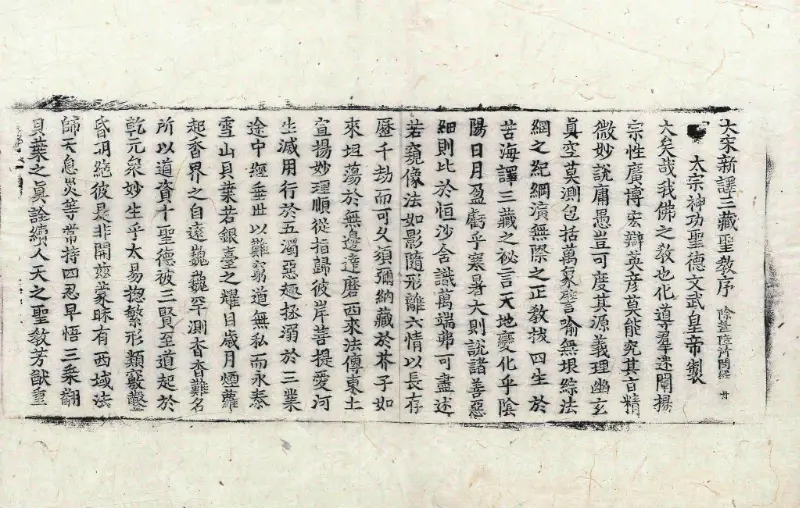 大宋新譯三藏聖教序
太宗神功聖德文武皇帝製
大矣哉我佛之教也化導羣迷闡揚
宗性廣博宏辯英彦莫能究其旨精
微妙說庸愚豈可度其源義理幽玄
真空莫測包括萬象譬喻無垠綜法
網之紀綱演無際之正教拔四生於
苦海譯三藏之祕言天地變化乎陰
陽日月盈虧乎寒暑大則說諸善惡
細則比於恒沙含識萬端弗可盡述
若窺像法如影隨形離六情以長存
歷千劫而可久須彌納藏於芥子如
來坦蕩於無邊達磨西來法傳東土
宣揚妙理順從指歸彼岸菩提愛河
生滅用行於五濁惡趣拯溺於三業
途中經垂世以難窮道無私而永泰
雪山貝葉若銀臺之耀目歲月煙蘿
起香界之自遠巍巍罕測杳杳難名
所以道資十聖德被三賢至道起於
乾元衆妙生乎太易揔繁形類竅鑿
昏明絕彼是非開茲蒙昧有西域法
師天息災等常持四忍早悟三乘翻
貝葉之眞詮續人天之聖教芳猷重